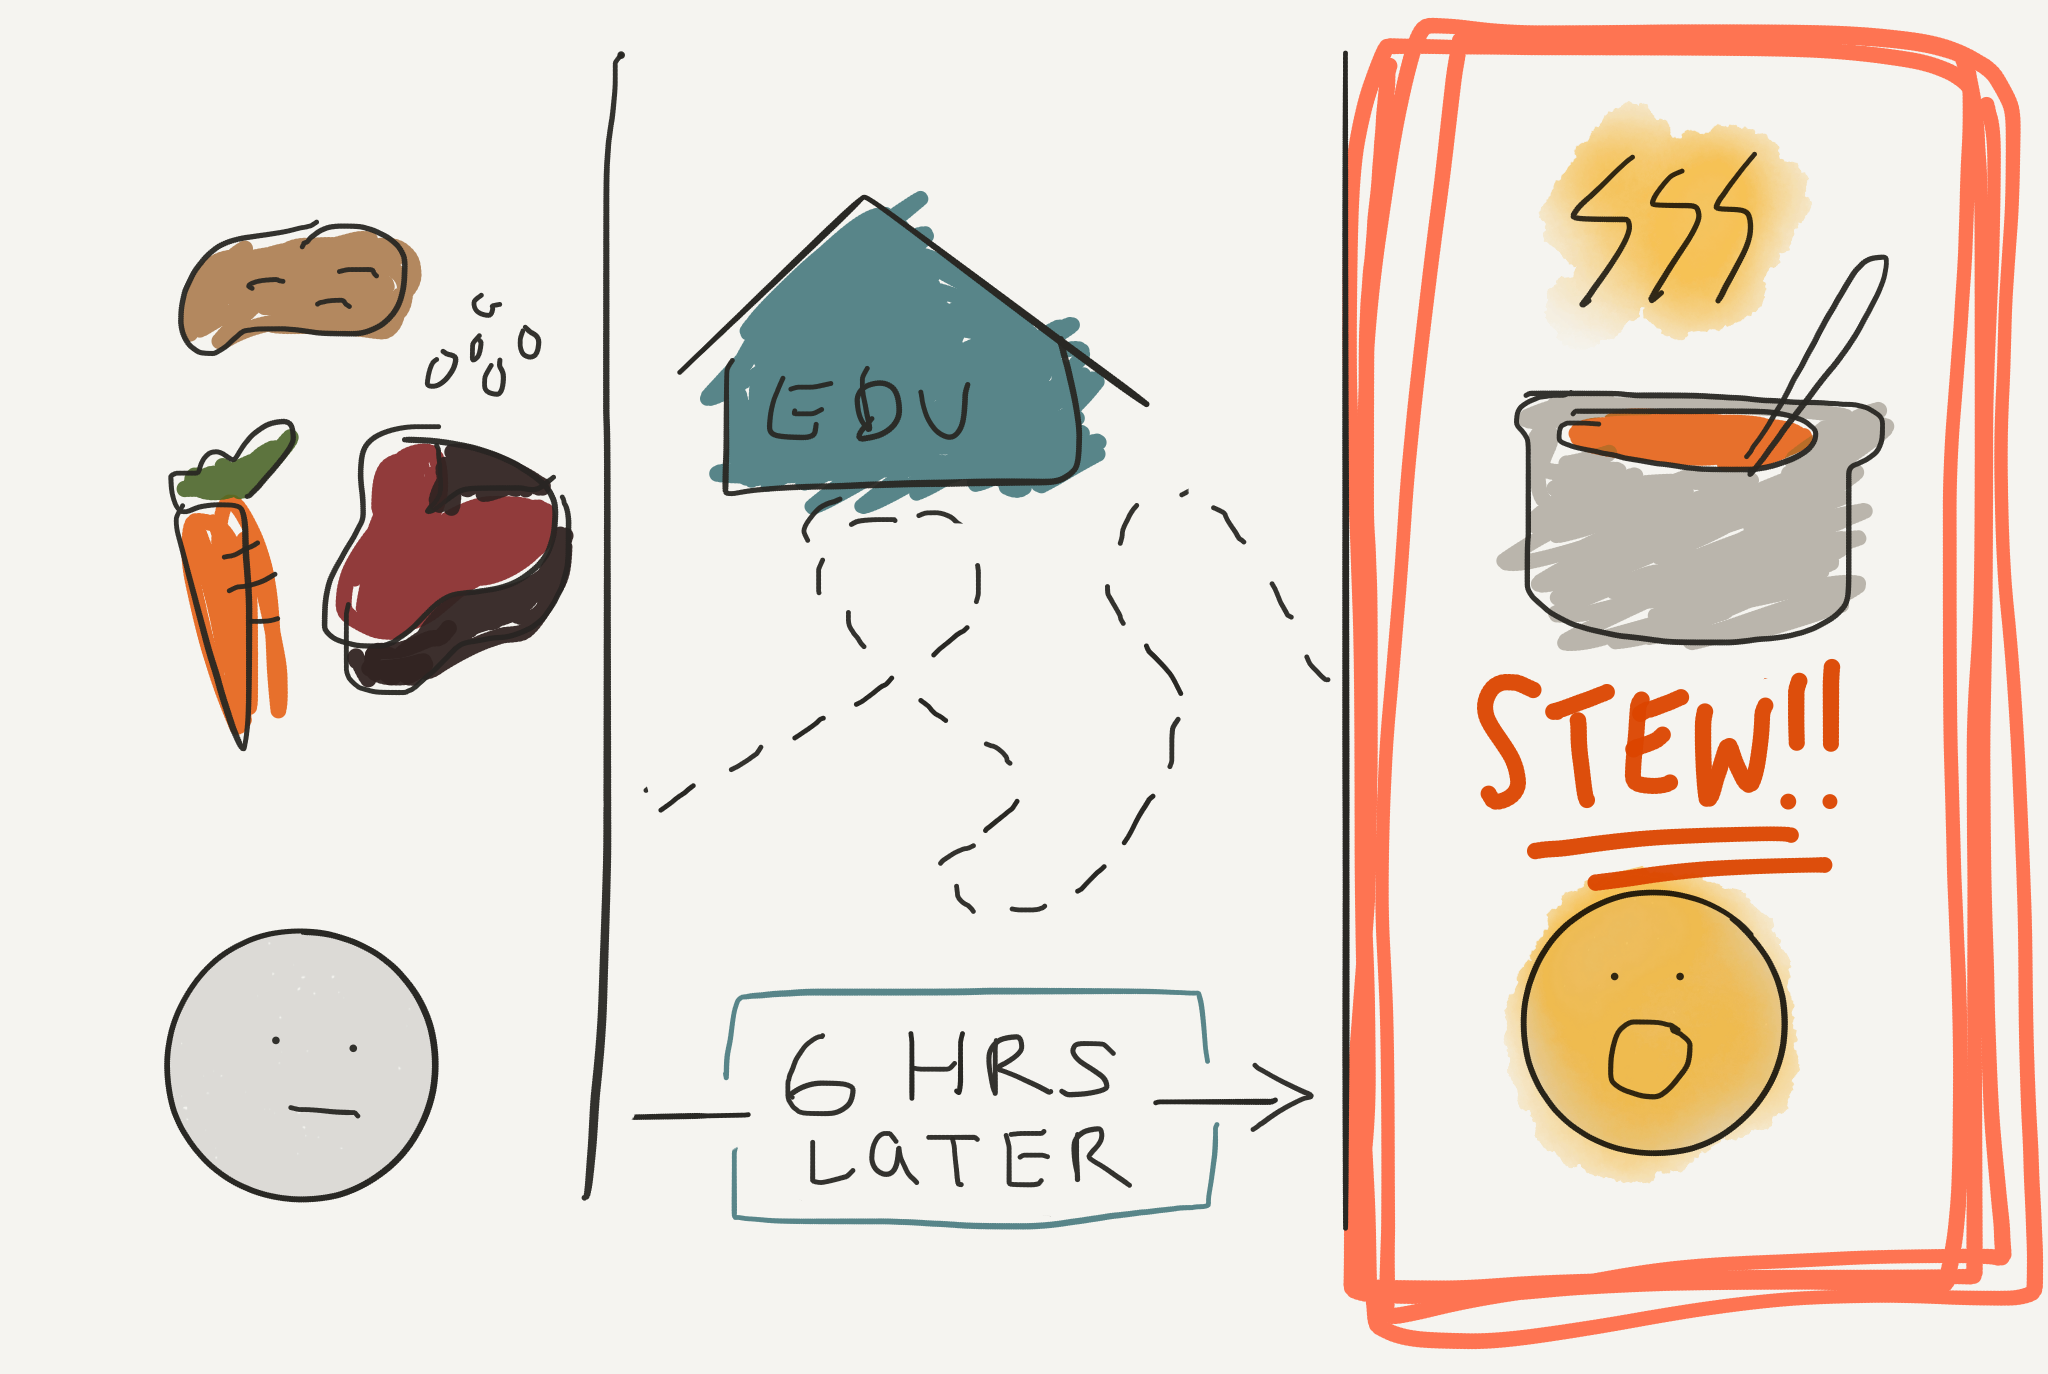 EDU
6 HRS
LaTER
STEW!!